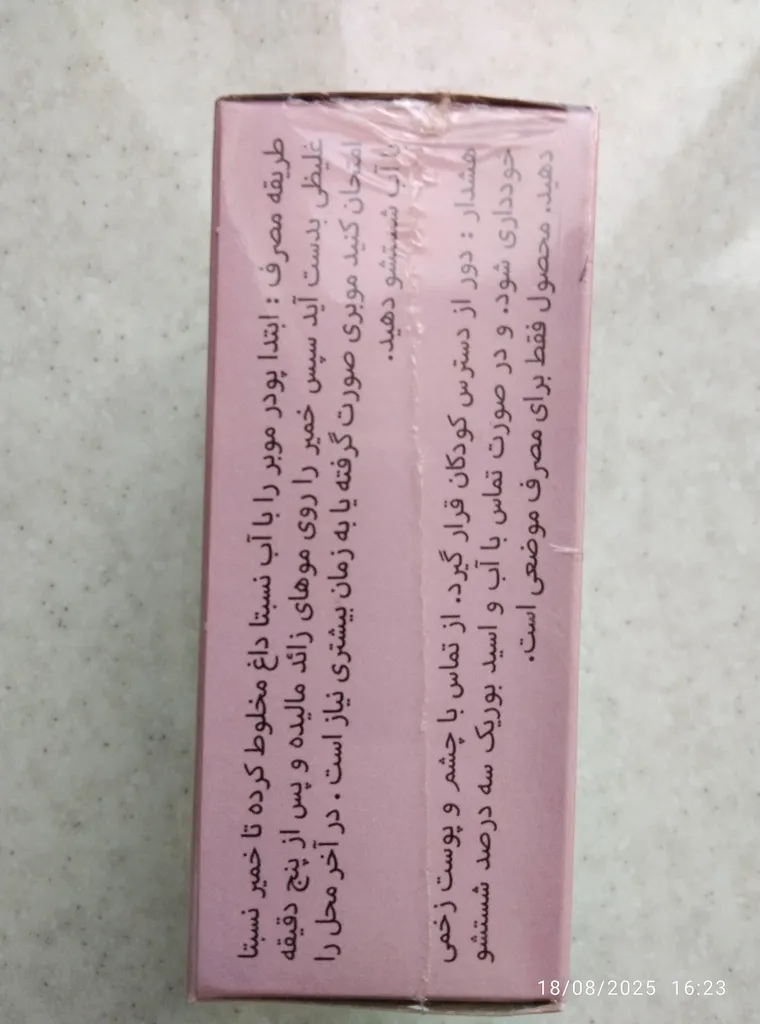 طریقه مصرف : ابتدا پودر موبر را با آب نسبتا داغ مخلوط کرده تا خمیر نسبتا
غلیظی بدست آید سپس خمیر را روی موهای زائد مالیده و پس از پنج دقیقه
امتحان کنید موبری صورت گرفته یا به زمان بیشتری نیاز است . در آخر محل را
با آب شستشو دهید.
هشدار : دور از دسترس کودکان قرار گیرد. از تماس با چشم و پوست زخمی
خودداری شود. و در صورت تماس با آب و اسید بوریک سه درصد شستشو
دهید. محصول فقط برای مصرف موضعی است.
18/08/2025 16:23